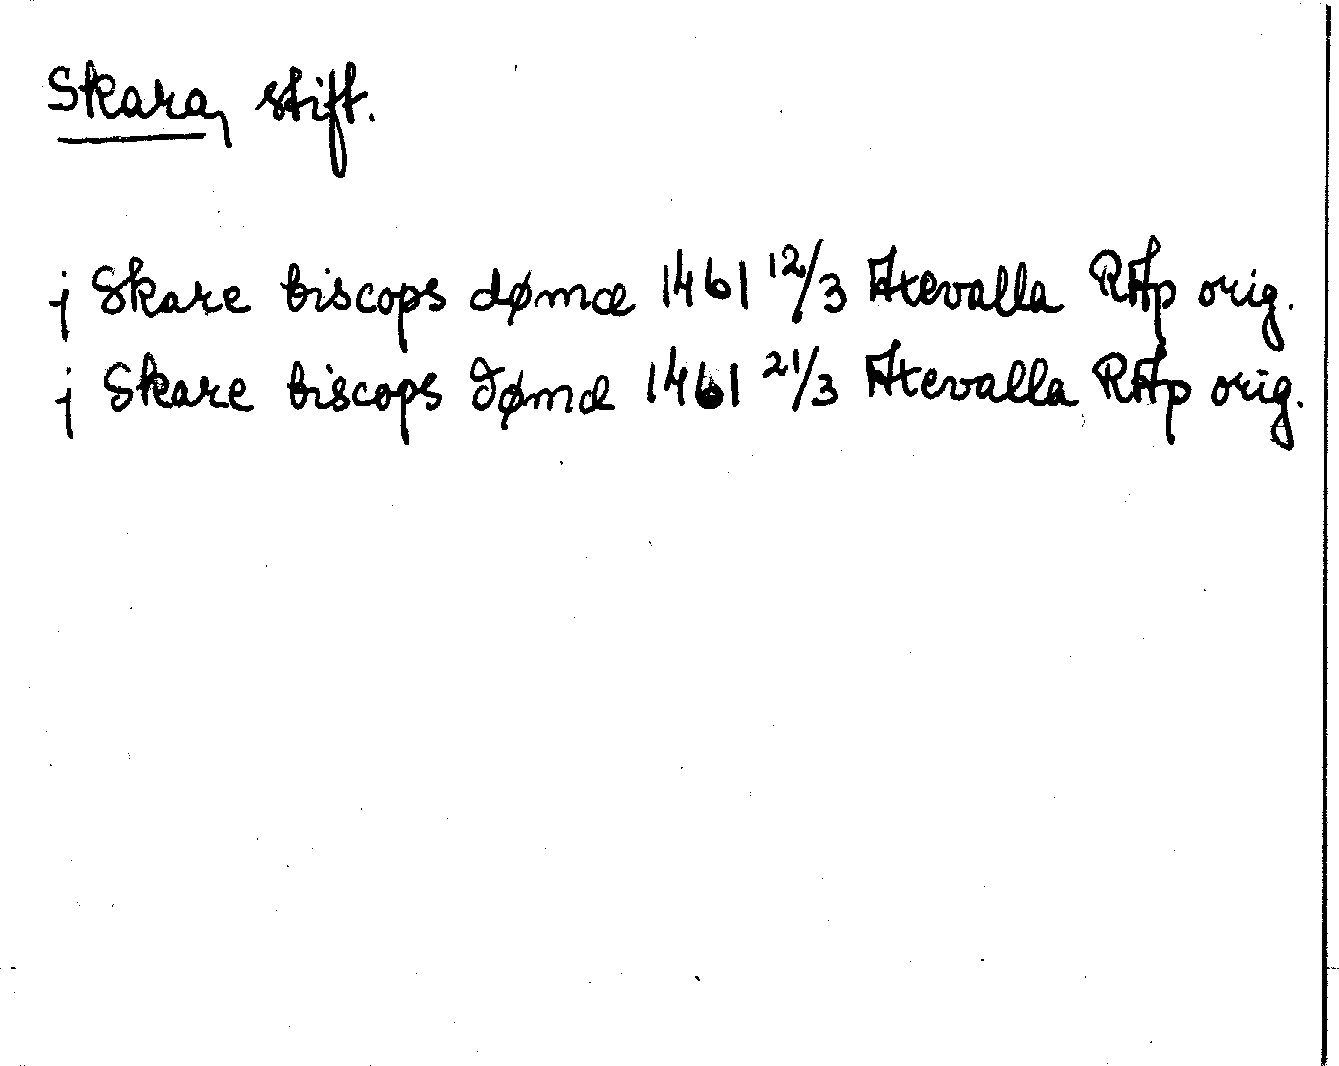 Skara, stift.
j Skare biscops dømæ 1461 12/3 Atevalla RAp orig.
j Skare biscops dømæ 1461 21/3 Atevalla RAp orig.